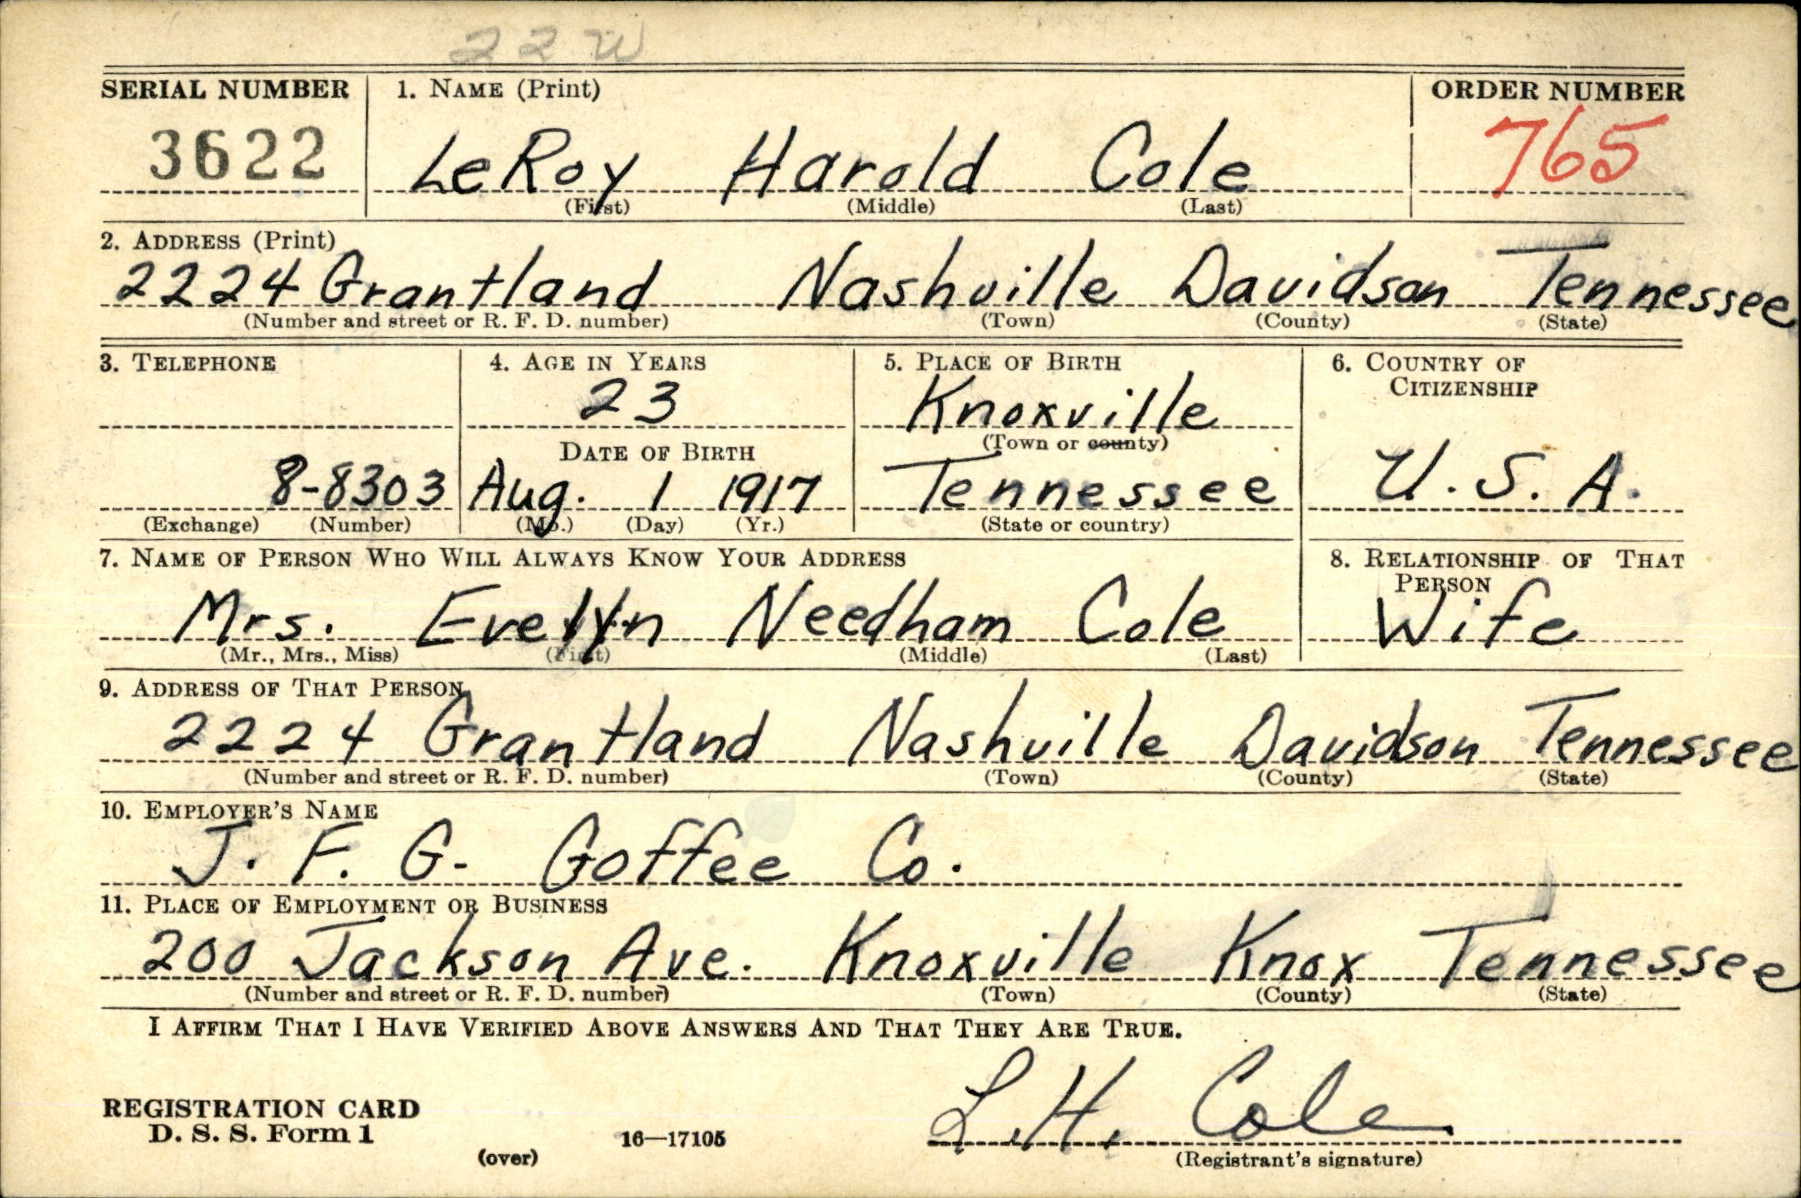 22 W
SERIAL NUMBER 1. NAME (Print) ORDER NUMBER
3622 LeRoy Harold Cole 765
(First) (Middle) (Last)
2. ADDRESS (Print)
2224 Grantland Nashville Davidson Tennessee
(Number and street or R. F. D. number) (Town) (County) (State)
3. TELEPHONE 4. AGE IN YEARS 5. PLACE OF BIRTH 6. COUNTRY OF
CITIZENSHIP
23 Knoxville
(Town or county)
DATE OF BIRTH
8-8303 Aug. 1 1917 Tennessee U. S. A.
(Exchange) (Number) (Mo.) (Day) (Yr.) (State or country)
7. NAME OF PERSON WHO WILL ALWAYS KNOW YOUR ADDRESS 8. RELATIONSHIP OF THAT
PERSON
Mrs. Evelyn Needham Cole Wife
(Mr., Mrs., Miss) (First) (Middle) (Last)
9. ADDRESS OF THAT PERSON
2224 Grantland Nashville Davidson Tennessee
(Number and street or R. F. D. number) (Town) (County) (State)
10. EMPLOYER'S NAME
J. F. G. Goffee Co.
11. PLACE OF EMPLOYMENT OR BUSINESS
200 Jackson Ave. Knoxville Knox Tennessee
(Number and street or R. F. D. number) (Town) (County) (State)
I AFFIRM THAT I HAVE VERIFIED ABOVE ANSWERS AND THAT THEY ARE TRUE.
REGISTRATION CARD
D. S. S. Form 1 16—17105 L. H. Cole
(over) (Registrant's signature)